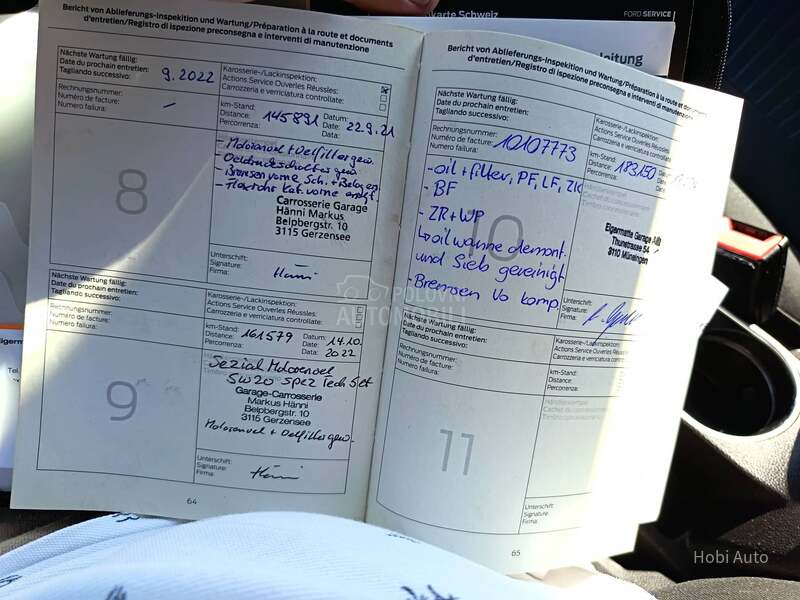 karte Schweiz
FORD SERVICE
leitung
Bericht von Ablieferungs-Inspektion und Wartung/Préparation à la route et documents
d'entretien/Registro di ispezione preconsegna e interventi di manutenzione
Nächste Wartung fällig:
Date du prochain entretien:
Tagliando successivo:
9.2022
Rechnungsnummer:
Numéro de facture:
Numero failura:
Karosserie-/Lackinspektion:
Actions Service Ouverles Réussles:
Carrozzeria e verniciatura controllate:
km-Stand:
Distance:
Percorrenza:
145891
Datum:
Date:
Data:
22.9.21
8
- Motorenoel + Oelfilter gew.
- Oeldruckschalter gew.
- Bremsen vorne Sch. + Beläge
Carrosserie Garage
Hänni Markus
Belpbergstr. 10
3115 Gerzensee
Unterschrift:
Signature:
Firma:
Nächste Wartung fällig:
Date du prochain entretien:
Tagliando successivo:
Rechnungsnummer:
Numéro de facture:
Numero failura:
Karosserie-/Lackinspektion:
Actions Service Ouverles Réussles:
Carrozzeria e verniciatura controllate:
km-Stand:
Distance:
Percorrenza:
161579
Datum:
Date:
Data:
14.10.
2022
9
Sezial Motorenoel
5W20 spez Tech
Garage-Carrosserie
Markus Hänni
Belpbergstr. 10
3115 Gerzensee
Motorenoel + Oelfilter gew.
Unterschrift:
Signature:
Firma:
64
Bericht von Ablieferungs-Inspektion und Wartung/Préparation à la route et documents
d'entretien/Registro di ispezione preconsegna e interventi di manutenzione
Nächste Wartung fällig:
Date du prochain entretien:
Tagliando successivo:
Rechnungsnummer:
Numéro de facture:
Numero failura:
10107773
Karosserie-/Lackinspektion:
Actions Service Ouverles
Carrozzeria e verniciatura
km-Stand:
Distance:
Percorrenza:
183150
10
- oil + filter, PF, LF, ZK
- BF
- ZR + WP
↳ oilwanne demont.
und Sieb gereinigt
- Bremsen Vo komp.
Eigermatte Garage
Thunstrasse 54
3110 Münsingen
Unterschrift:
Signature:
Firma:
Nächste Wartung fällig:
Date du prochain entretien:
Tagliando successivo:
Rechnungsnummer:
Numéro de facture:
Numero failura:
Karosserie-/Lackinspektion:
Actions Service Ouverles
Carrozzeria e verniciatura
km-Stand:
Distance:
Percorrenza:
11
Unterschrift:
Signature:
Firma:
65
POLOVNI
AUTOMOBILI
Hobi Auto